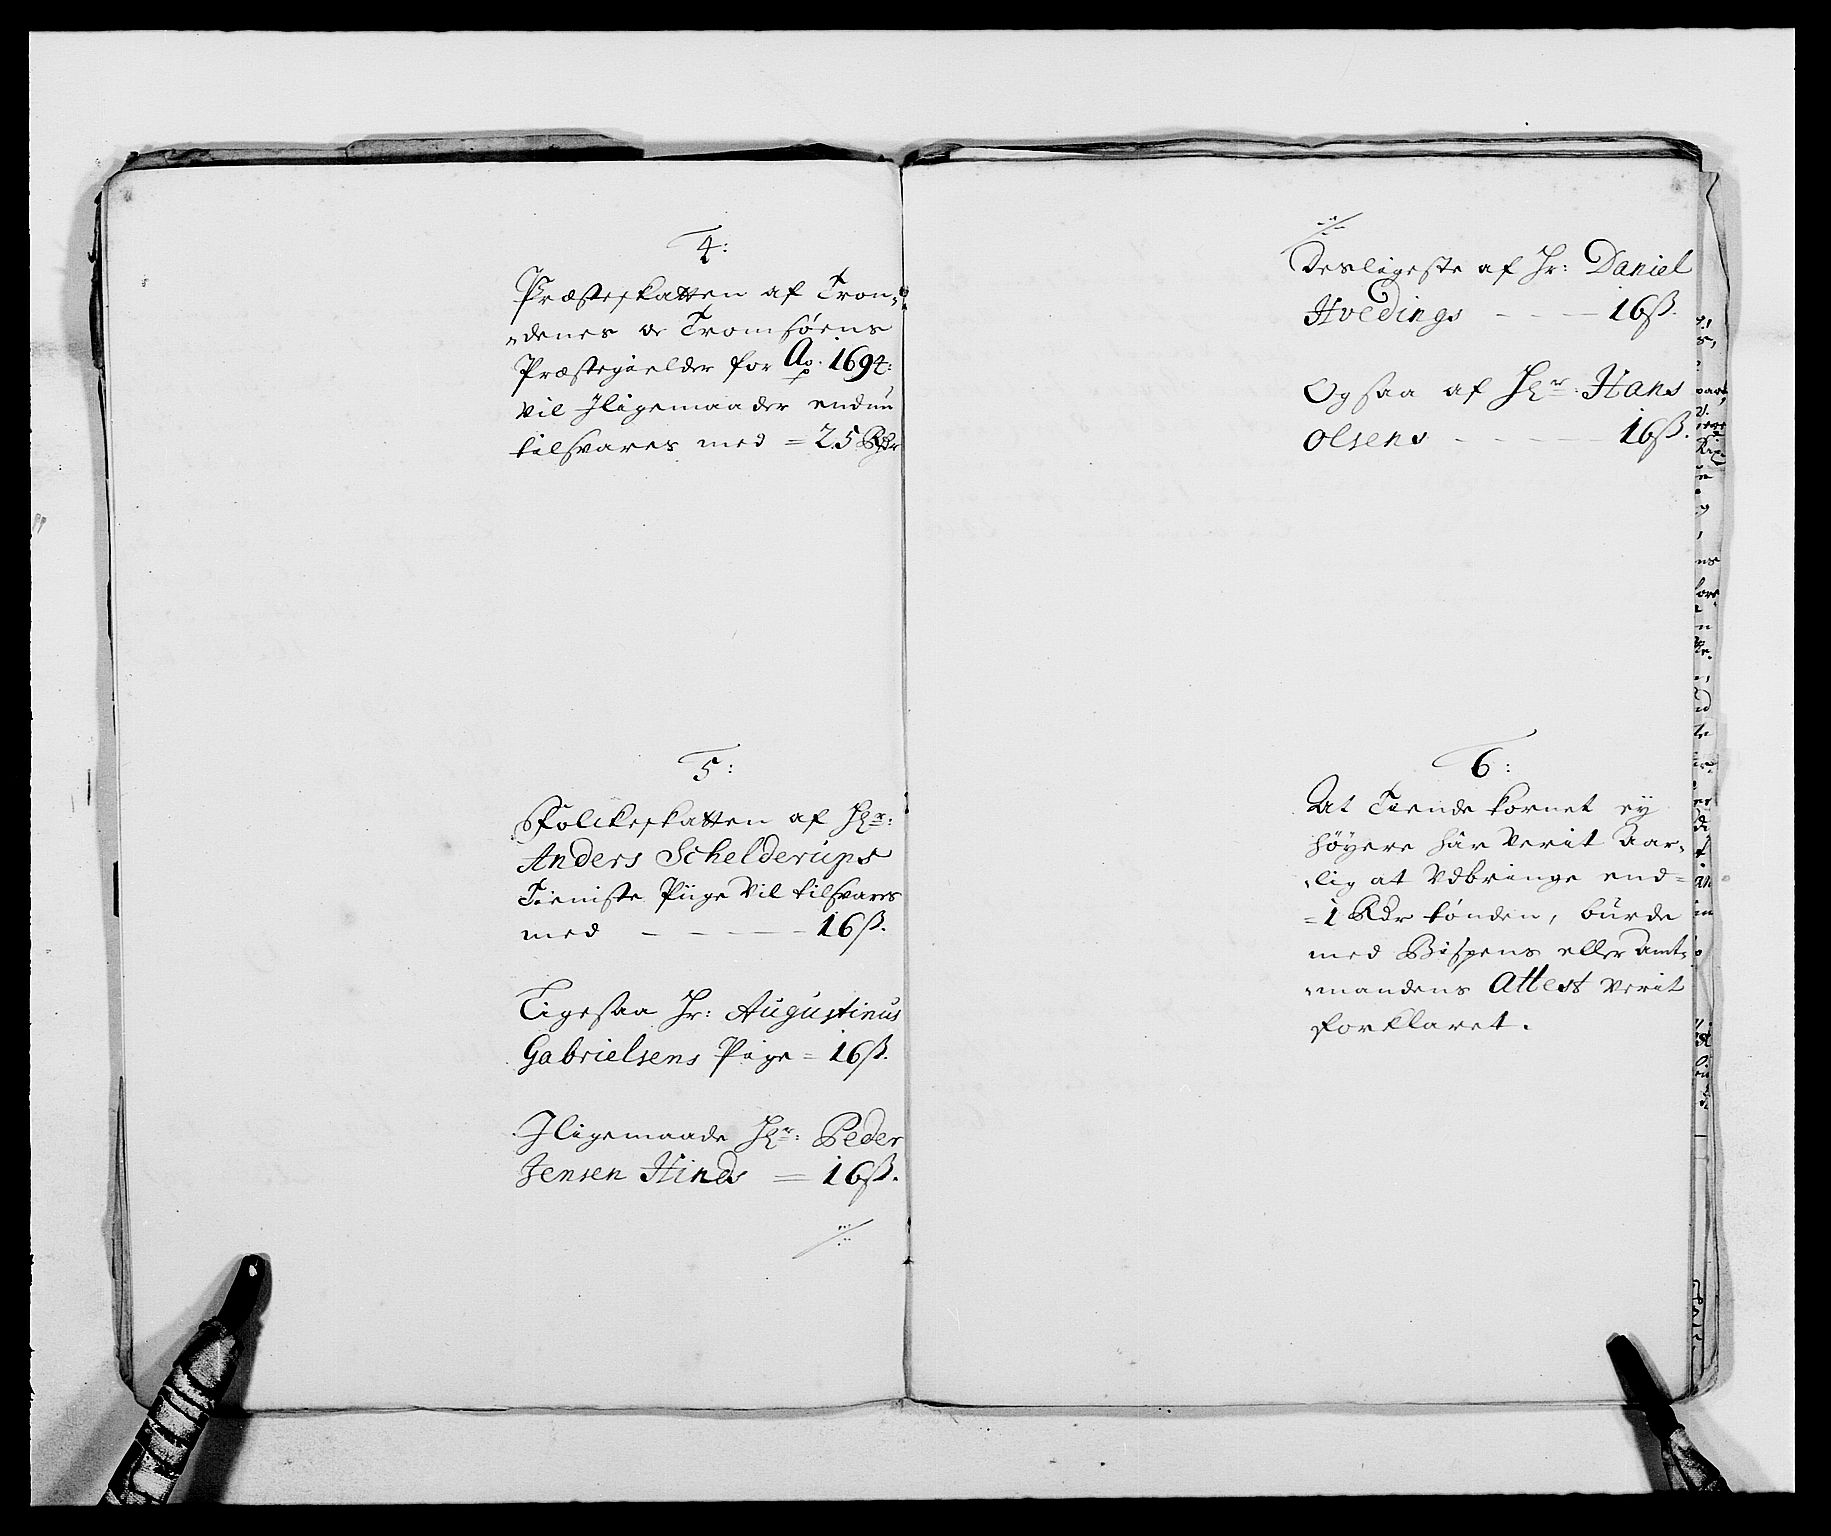 4:
Præsteskatten af Tron„
„denes oc Tromsöens
Præstegielder for Ao. 1694:
vil Jligemaader endnu
tilsvares med = 25 Rdr
5:
Folckeskatten af Hr:
Anders Schelderups
Tieniste Piige vil tilsvares
med - - - - - 16 ß.
Ligesaa Hr: Augustinus
Gabrielsens Pige = 16 ß.
Jligemaade Hr: Peder
Jensen Hinds = 16 ß.
·/.
·/.
Desligeste af Hr: Daniel
Hvedings - - - 16 ß.
Ogsaa af Hr: Hans
Olsens - - - - 16 ß.
6:
At Tiende kornet ey
höyere här verit Aar„
„lig at Udbringe end =
= 1 Rdr tönden, burde
med Bispens eller Amt„
„mandens Attest verit
forklaret.